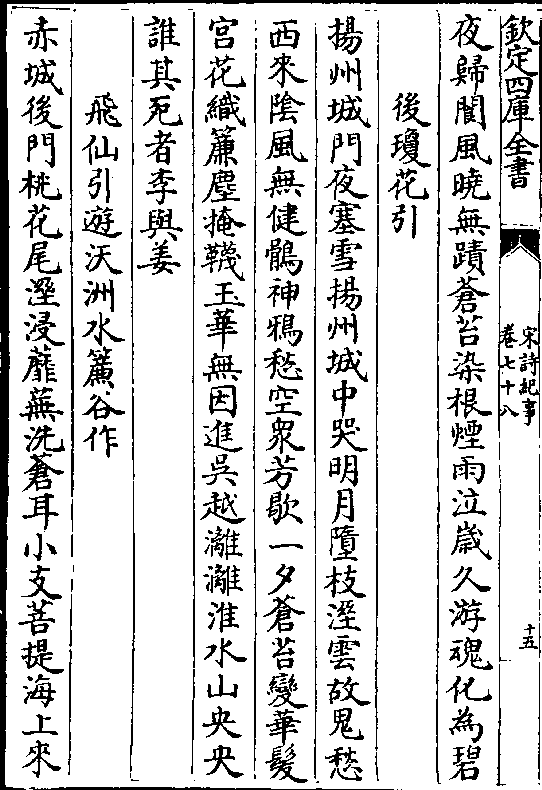 欽定四庫全書
宋詩紀事
卷七十八
十五
夜歸閬風曉無蹟蒼苔染根煙雨泣歲久游魂化為碧
後瓊花引
揚州城門夜塞雪揚州城中哭明月墮枝溼雲故鬼愁
西來陰風無健鶻神鴉愁空衆芳歇一夕蒼苔變華髮
宮花織簾塵掩韈玉華無因進吳越灕灕淮水山央央
誰其死者李與姜
飛仙引遊沃洲水簾谷作
赤城後門桃花尾溼浸蘼蕪洗蒼耳小支菩提海上來